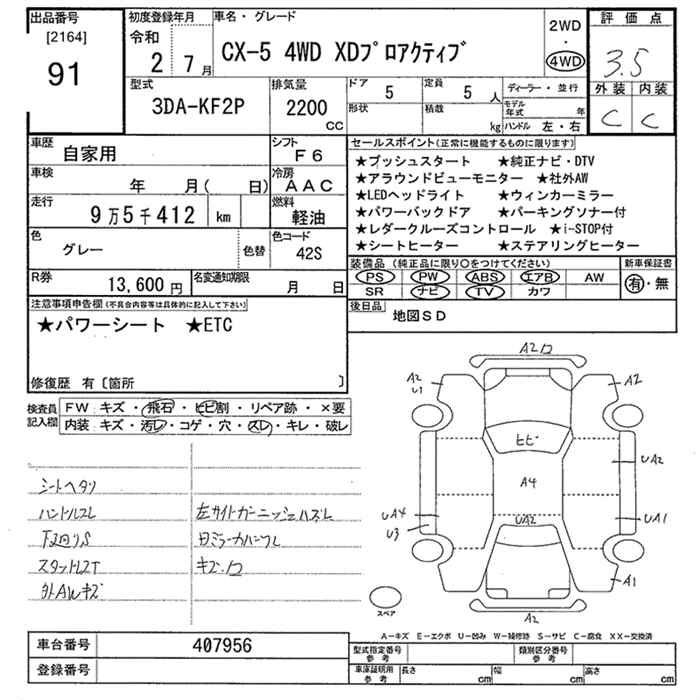 出品番号
[2164]
91
初度登録年月
令和
2 7月
車名・グレード
CX-5 4WD XDプロアクティブ
2WD
・
4WD
評価点
3.5
外装 内装
C C
型式
3DA-KF2P
排気量
2200
CC
ドア
5
定員
5 人
形状
積載
kg
ディーラー・並行
モデル年式 年
ハンドル 左・右
車歴
自家用
シフト
F6
車検
年 月( 日)
冷房
AAC
走行
9万5千412 km
燃料
軽油
色
グレー
色替
色コード
42S
R券
13,600円
名変通知期限
月 日
セールスポイント(正常に機能するものに限ります)
★プッシュスタート ★純正ナビ・DTV
★アラウンドビューモニター ★社外AW
★LEDヘッドライト ★ウィンカーミラー
★パワーバックドア ★パーキングソナー付
★レダークルーズコントロール ★i-STOP付
★シートヒーター ★ステアリングヒーター
装備品(純正品に限り○をつけてください)
PS PW ABS エアB AW
SR ナビ TV カワ
新車保証書
有・無
後日品
地図SD
注意事項申告欄(不具合内容等は具体的に記入して下さい)
★パワーシート ★ETC
修復歴 有〔箇所 〕
検査員記入欄
FW:キズ・飛石・ヒビ割・リペア跡・×要
内装:キズ・汚レ・コゲ・穴・スレ・キレ・破レ
シートヘタリ
ハンドルスレ
下廻りS
スタッドレスT
外AWキズ
左サイドガーニッシュハズレ
キズ、ワ
A2
A2
U1
A2
ヒビ
A4
UA2
UA2
UA4
U3
UA1
A1
A2
スペア
A-キズ E-エクボ U-凹み W-補修跡 S-サビ C-腐食 XX-交換済
車台番号
407956
登録番号
型式指定番号
参考
類別区分番号
参考
車庫証明用
参考
長さ cm
幅 cm
高さ cm